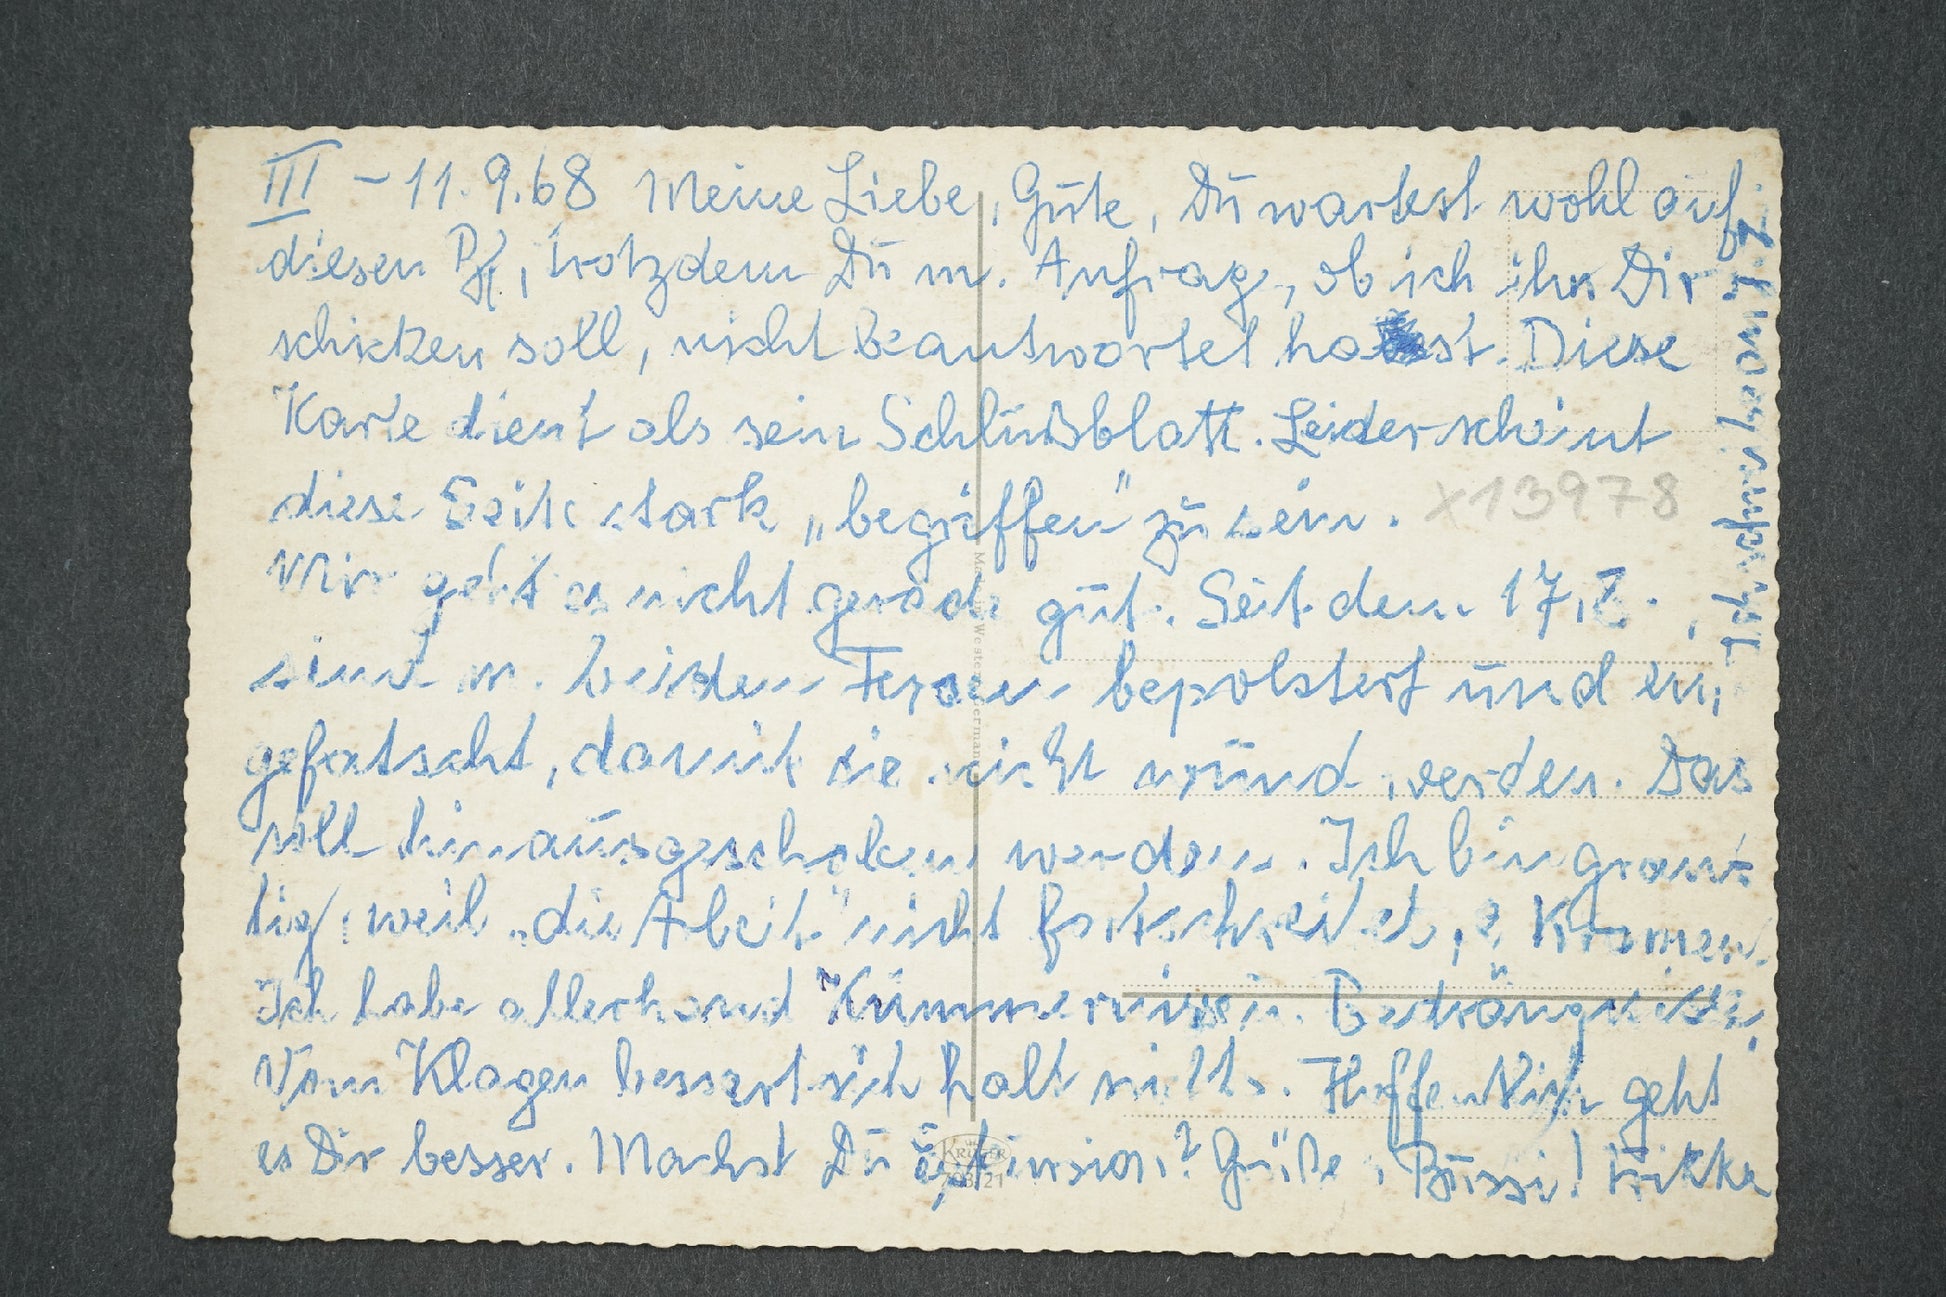 III – 11.9.68 Meine Liebe, Gute, Du wartest wohl auf
diesen Pf, trotzdem Du m. Anfrag., ob ich ihn Dir
schicken soll, nicht beantwortet hast. Diese
Karte dient als sein Schlußblatt. Leider scheint
diese Seite stark „begriffen" zu sein.
x13978
Mir geht es nicht gerade gut. Seit dem 17.8.
sind m. beiden Fersen bepolstert und ein
gefatscht, damit sie nicht wund werden. Das
soll hinausgeschoben werden. Ich bin gran
tig, weil „die Arbeit" nicht fortschreitet,
Ich habe allerhand Kümmernisse u. Bedrängnisse.
Vom Klagen bessert sich halt nichts. Hoffentlich geht
es Dir besser. Machst Du Grüße, Bussi!
Kruger